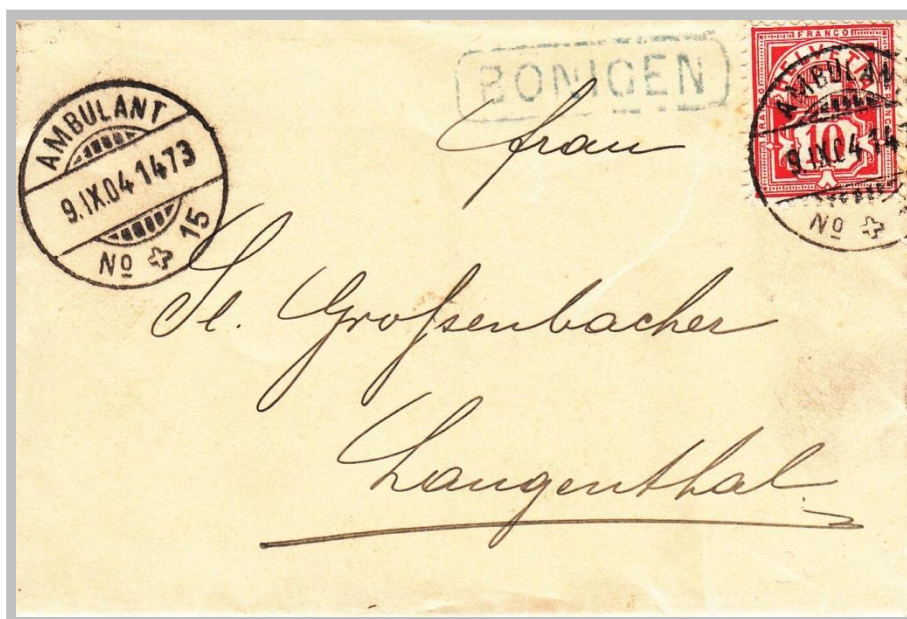 AMBULANT
9.IX.04 1473
No 15
BONIGEN
FRANCO
HELVETIA
10
AMBULAN
9.IX.04 14
No
Frau
Großenbacher
Langenthal